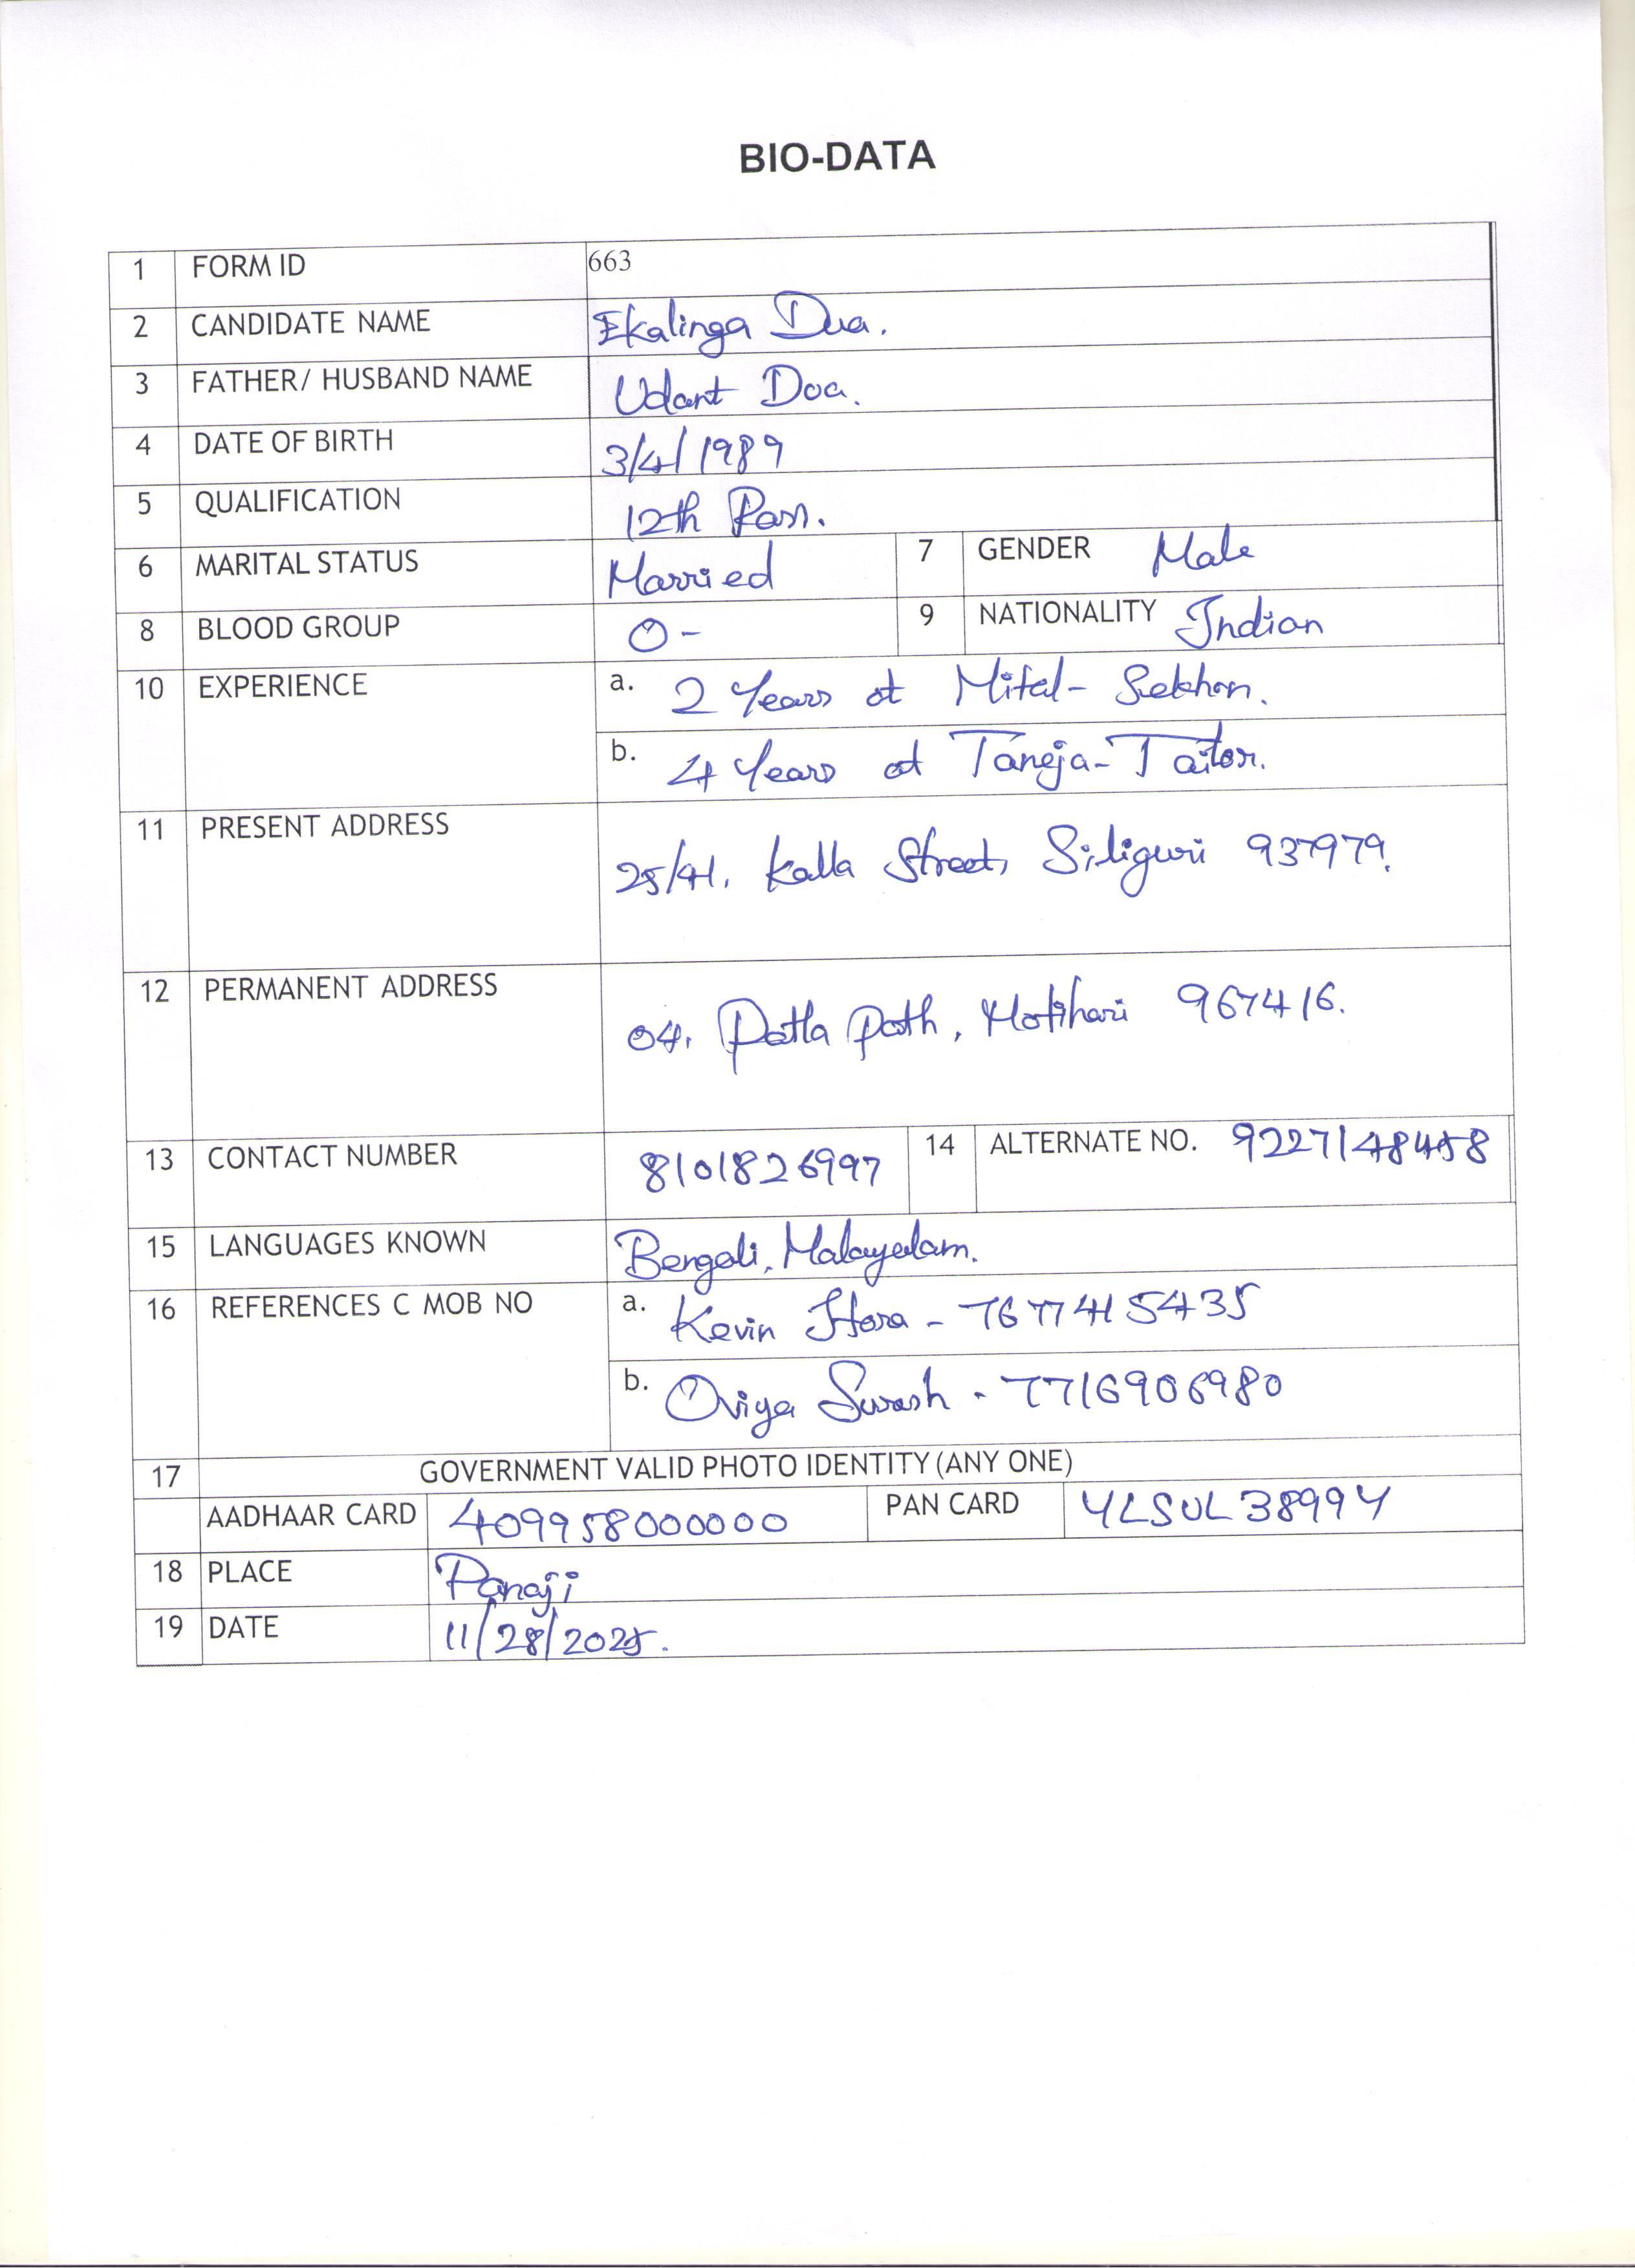 BIO-DATA
1 FORM ID 663
2 CANDIDATE NAME Ekalinga Dua.
3 FATHER/ HUSBAND NAME Udant Doa.
4 DATE OF BIRTH 3/4/1989
5 QUALIFICATION 12th Pass.
6 MARITAL STATUS Married 7 GENDER Male
8 BLOOD GROUP O- 9 NATIONALITY Indian
10 EXPERIENCE a. 2 Years at Mital- Sekhon.
b. 4 Years at Taneja- Tailor.
11 PRESENT ADDRESS 25/41, Kalla Street, Siliguri 937979.
12 PERMANENT ADDRESS 04, Patla Path, Motihari 967416.
13 CONTACT NUMBER 8101826997 14 ALTERNATE NO. 9227148458
15 LANGUAGES KNOWN Bengali, Malayalam.
16 REFERENCES C MOB NO a. Kevin Hora - 7677415435
b. Oviya Swash - 7716906980
17 GOVERNMENT VALID PHOTO IDENTITY (ANY ONE)
AADHAAR CARD 409958000000 PAN CARD YLSUL3899Y
18 PLACE Panaji
19 DATE 11/28/2025.